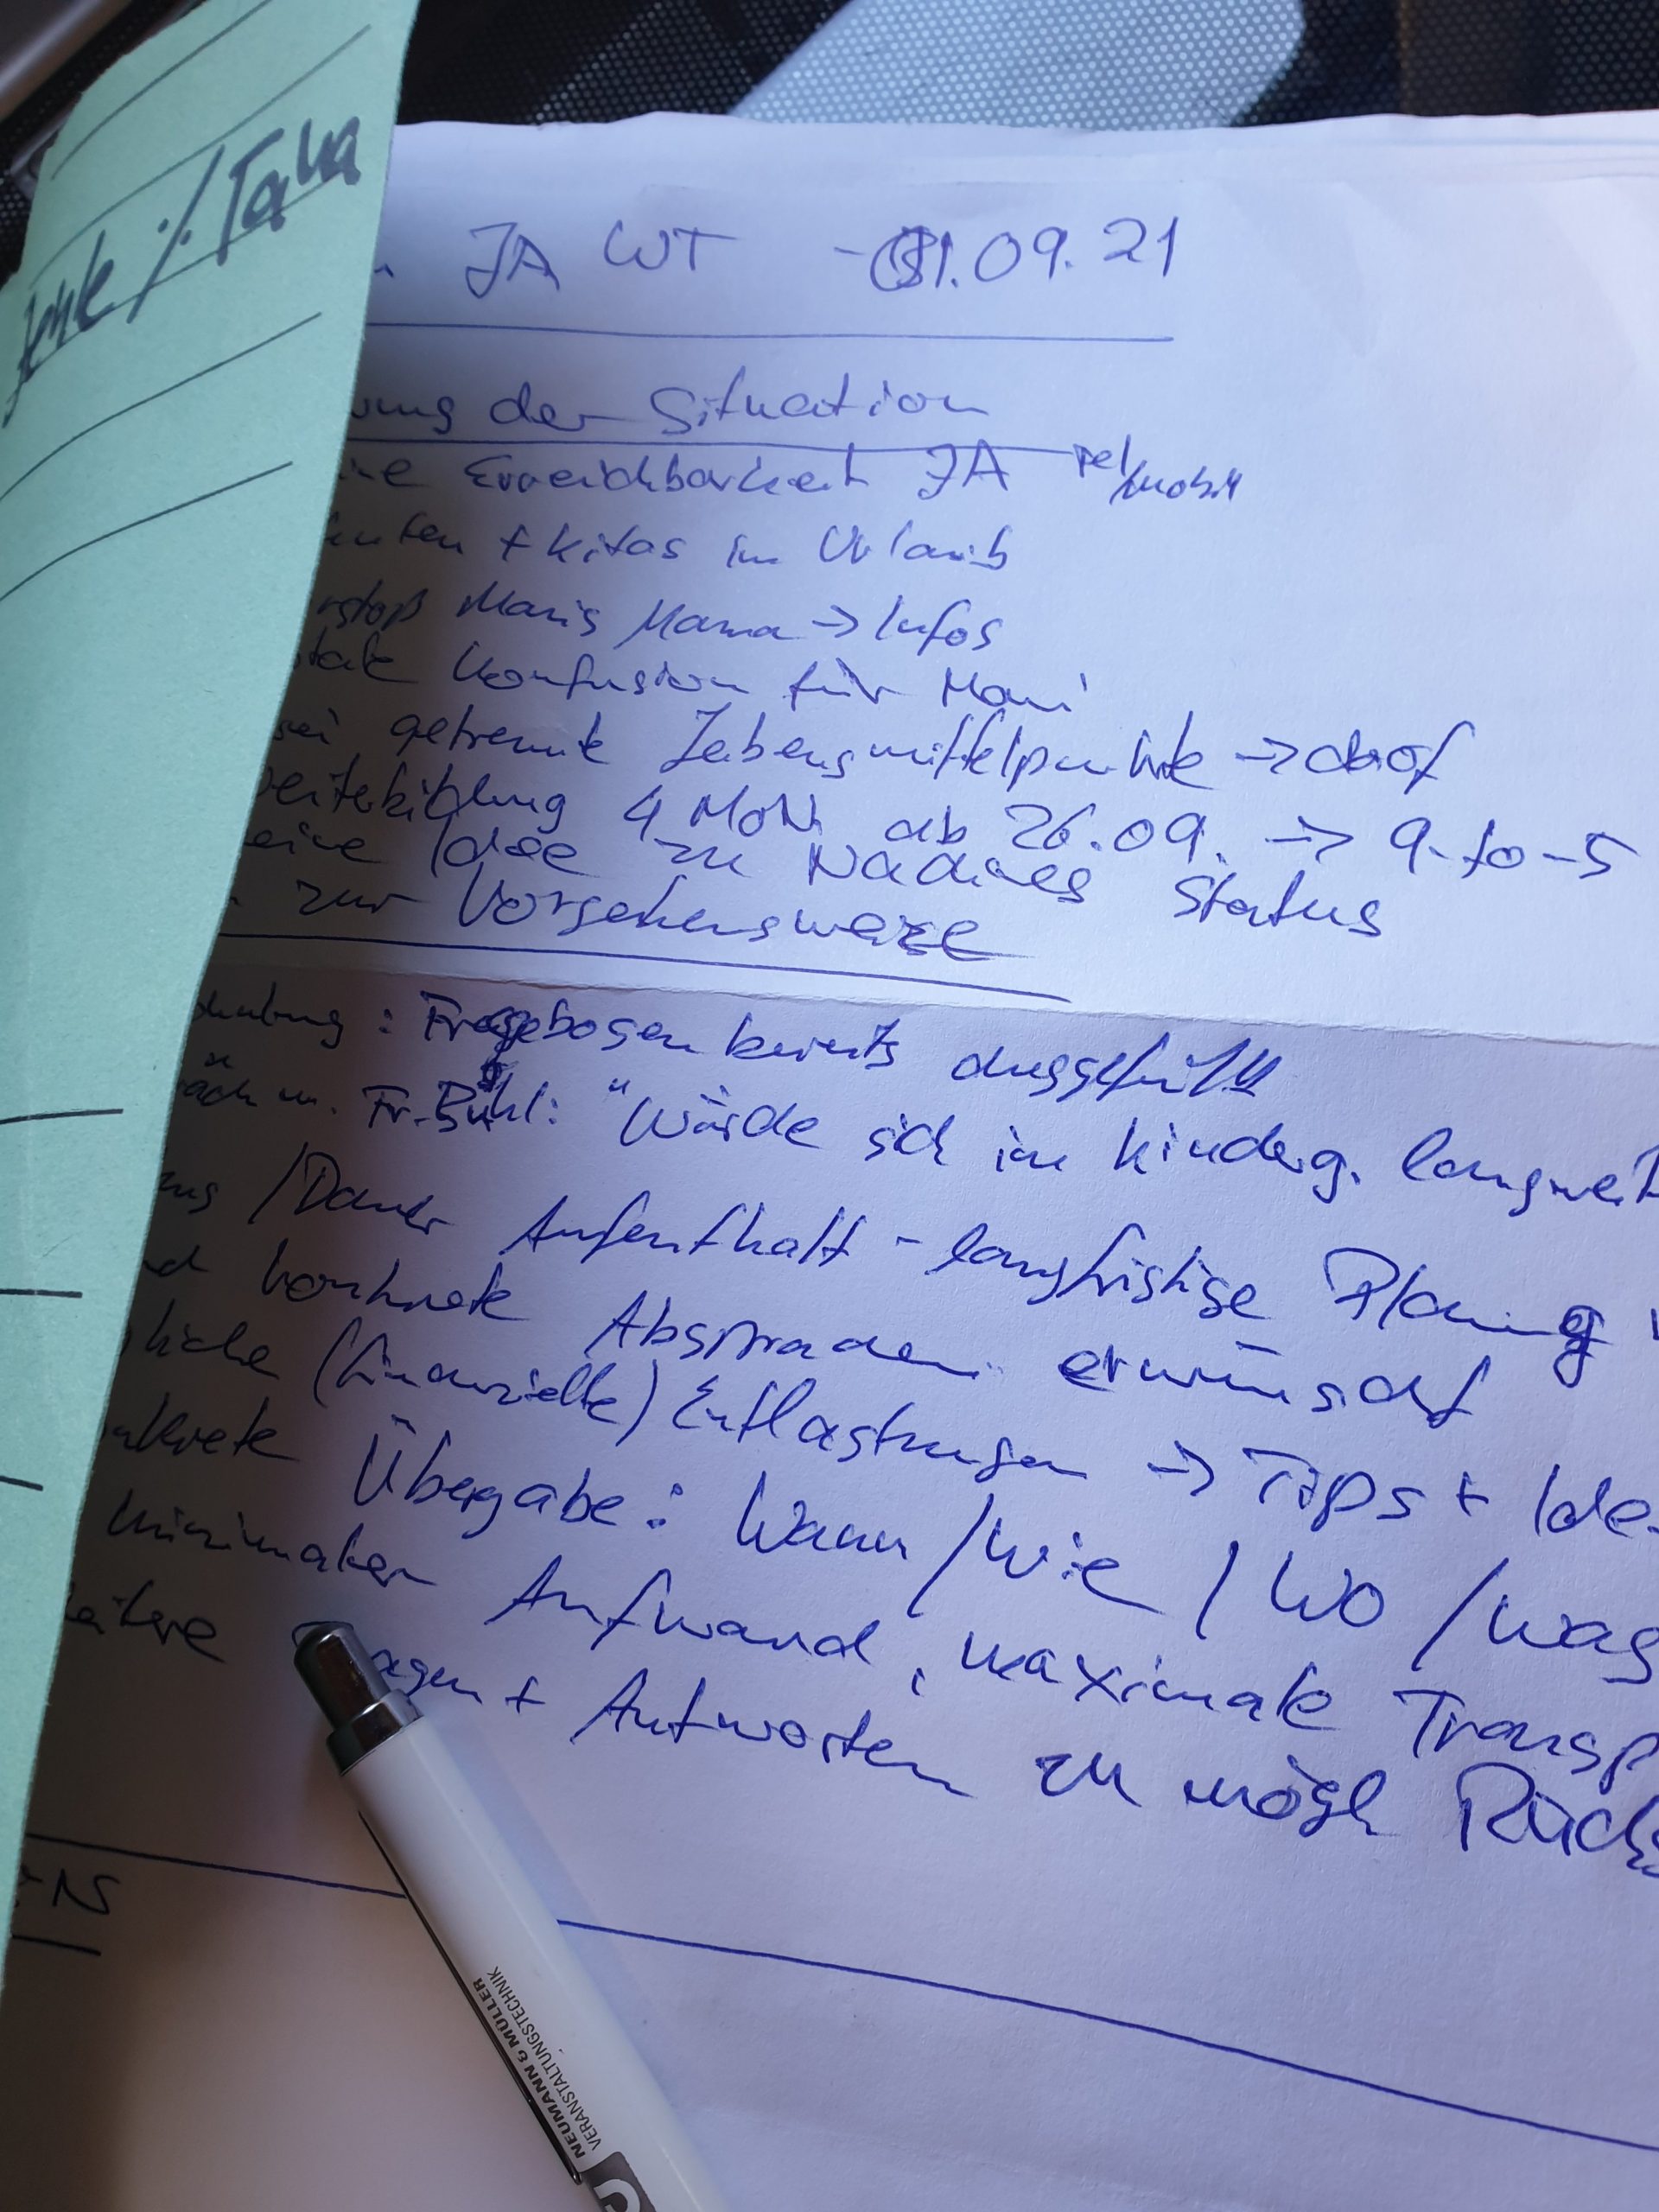 / Tana
JA WT - 01.09.21
ung der Situation
ine Erreichbarkeit JA Tel/mobil
+ Kitas im Urlaub
rstoß Maris Mama -> Infos
tale Konfusion für Mari
getrennte Lebensmittelpunkte -> doof
eiterbildung 4 MoN. ab 26.09. -> 9-to-5
eine Idee zu Nadines Status
zur Vorgehensweise
: Fragebogen bereits ausgefüllt
äch m. Fr. Bühl: "Würde sich im Kinderg. langweil
ng / Dauer Aufenthalt - langfristige Planung
d konkrete Absprachen erwünscht
liche (finanzielle) Entlastungen -> Tips + Ide
nkrete Übergabe: Wann / Wie / Wo / Was
minimaler Aufwand, maximale Transp
agen + Antworten zu mögl Rück
NEUMANN & MÜLLER
VERANSTALTUNGSTECHNIK